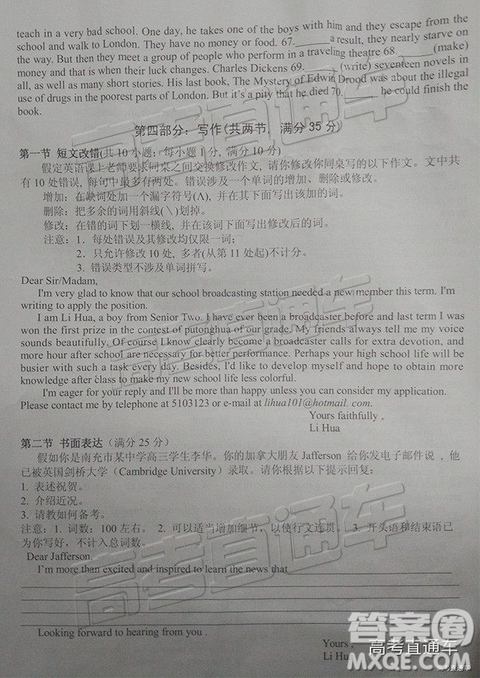 teach in a very bad school. One day, he takes one of the boys with him and they escape from the
school and walk to London. They have no money or food. 67.______a result, they nearly starve on
the way. But then they meet a group of people who perform in a traveling theatre 68.______(make)
money and that is when their luck changes. Charles Dickens 69.______(write) seventeen novels in
all, as well as many short stories. His last book, The Mystery of Edwin Drood was about the illegal
use of drugs in the poorest parts of London. But it's a pity that he died 70.______ he could finish the
book.
第四部分：写作(共两节，满分 35 分)
第一节 短文改错(共 10 小题；每小题 1 分，满分 10 分)
假定英语课上老师要求同桌之间交换修改作文，请你修改你同桌写的以下作文。文中共
有 10 处错误，每句中最多有两处。错误涉及一个单词的增加、删除或修改。
增加：在缺词处加一个漏字符号(∧)，并在其下面写出该加的词。
删除：把多余的词用斜线(\)划掉。
修改：在错的词下划一横线，并在该词下面写出修改后的词。
注意：1. 每处错误及其修改均仅限一词；
2. 只允许修改 10 处，多者(从第 11 处起)不计分。
3. 错误类型不涉及单词拼写。
Dear Sir/Madam,
I'm very glad to know that our school broadcasting station needed a new member this term. I'm
writing to apply the position.
I am Li Hua, a boy from Senior Two. I have ever been a broadcaster before and last term I won
the first prize in the contest of putonghua of our grade. My friends always tell me my voice
sounds beautifully. Of course I know clearly become a broadcaster calls for extra devotion, and
more hour after school are necessary for better performance. Perhaps your high school life will be
busier with such a task every day. Besides, I'd like to improve myself and hope to obtain more
knowledge after class to make my new school life less colorful.
I'm eager for your reply and I'll be more than happy unless you can consider my application.
Please contact me by telephone at 5103123 or e-mail at lihua101@hotmail.com.
Yours faithfully ,
Li Hua
第二节 书面表达（满分 25 分）
假如你是南充市某中学高三学生李华。你的加拿大朋友 Jafferson 给你发电子邮件说，他
已被英国剑桥大学（Cambridge University）录取。请你根据以下提示回复：
1. 表述祝贺。
2. 介绍近况。
3. 请教如何备考。
注意：1. 词数：100 左右。2. 可以适当增加细节，以使行文连贯。3. 开头语和结束语已
为你写好，不计入总词数。
Dear Jafferson,
I'm more than excited and inspired to learn the news that
Looking forward to hearing from you .
Yours ,
Li Hua
高考直通车
答案圈
高考直通车
MXQE.COM